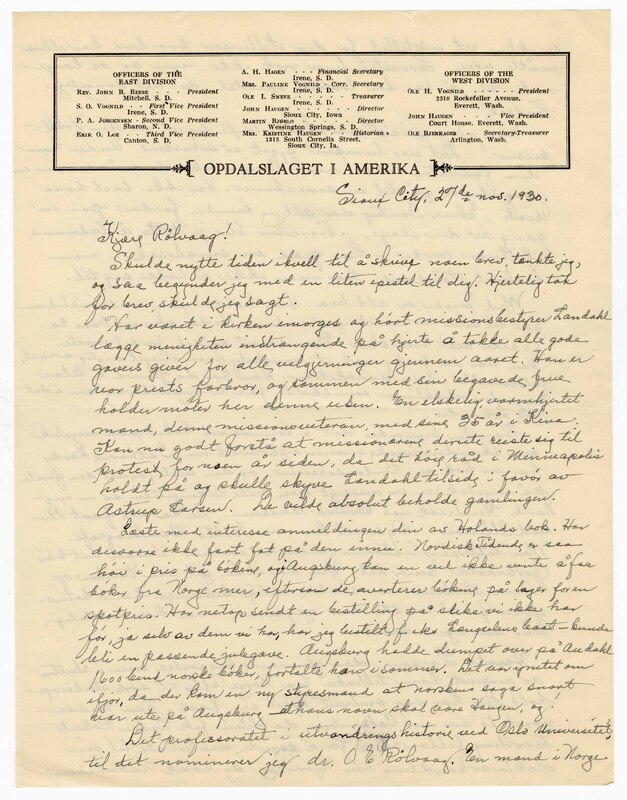 OFFICERS OF THE
EAST DIVISION
REV. JOHN B. REESE - - - President
Mitchell, S. D.
S. O. VOGNILD - - - First Vice President
Irene, S. D.
P. A. JORGENSEN - Second Vice President
Sharon, N. D.
ERIK O. LOE - - Third Vice President
Canton, S. D.
A. H. HAGEN - - - Financial Secretary
Irene, S. D.
MRS. PAULINE VOGNILD - Corr. Secretary
Irene, S. D.
OLE I. SNEVE - - - - Treasurer
Irene, S. D.
JOHN HAUGEN - - - - Director
Sioux City, Iowa
MARTIN BJØRLO - - - - Director
Wessington Springs, S. D.
MRS. KRISTINE HAUGEN - - Historian
1315 South Cornelia Street,
Sioux City, Ia.
OFFICERS OF THE
WEST DIVISION
OLE H. VOGNILD - - - President
2510 Rockefeller Avenue,
Everett, Wash.
JOHN HAUGAN - - Vice President
Court House, Everett, Wash.
OLE BJERKAGER - Secretary-Treasurer
Arlington, Wash.
OPDALSLAGET I AMERIKA
Sioux City, 27de nov. 1930.
Kjære Rølvaag!
Skulde nytte tiden ikvell til å skrive noen brev, tenkte jeg,
og saa begynder jeg med en liten epistel til dig. Hjertelig tak
for brev, skulde jeg sagt.
Har været i kirken imorges og hørt missionsbestyrer Landahl
lægge menigheten indtrængende på hjerte å takke alle gode
gavers giver for alle velgjerninger gjennem aaret. Han er
vor prests farbror, og sammen med sin begavede frue
holder møter her denne uken. En elskelig, varmhjertet
mand, denne missionsveteran, med sine 25 år i Kina.
Kan nu godt forstå at missionærene derute reiste sig til
protest for noen år siden, da det høie råd i Minneapolis
holdt på og skulle skyve Landahl tilside i favør av
Astrup Larsen. De vilde absolut beholde gamlingen.
Læste med interesse anmeldingen din av Holands bok. Har
desværre ikke faat fat på den ennu. Nordisk Tidende er saa
høi i pris på bøkene, og Augsburg kan en vel ikke vente å faa
bøker fra Norge mer, eftersom de averterer bøkene på lager for en
spotpris. Har netop sendt en bestilling på slike vi ikke har
før, ja selv av dem vi har, har jeg bestilt, f. eks. kunde
bli en passende julegave. Augsburg hadde dumpet over på Andahl
1600 bind norske bøker, fortalte han i sommer. Det var ymtet om
ifjor, da der kom en ny styresmand at norskens saga snart
var ute på Augsburg hans navn skal være Haugen, og.
Det professoratet i utvandringshistorie ved Oslo Universitet,
til det nominerer jeg dr. O. E. Rølvaag. En mand i Norge